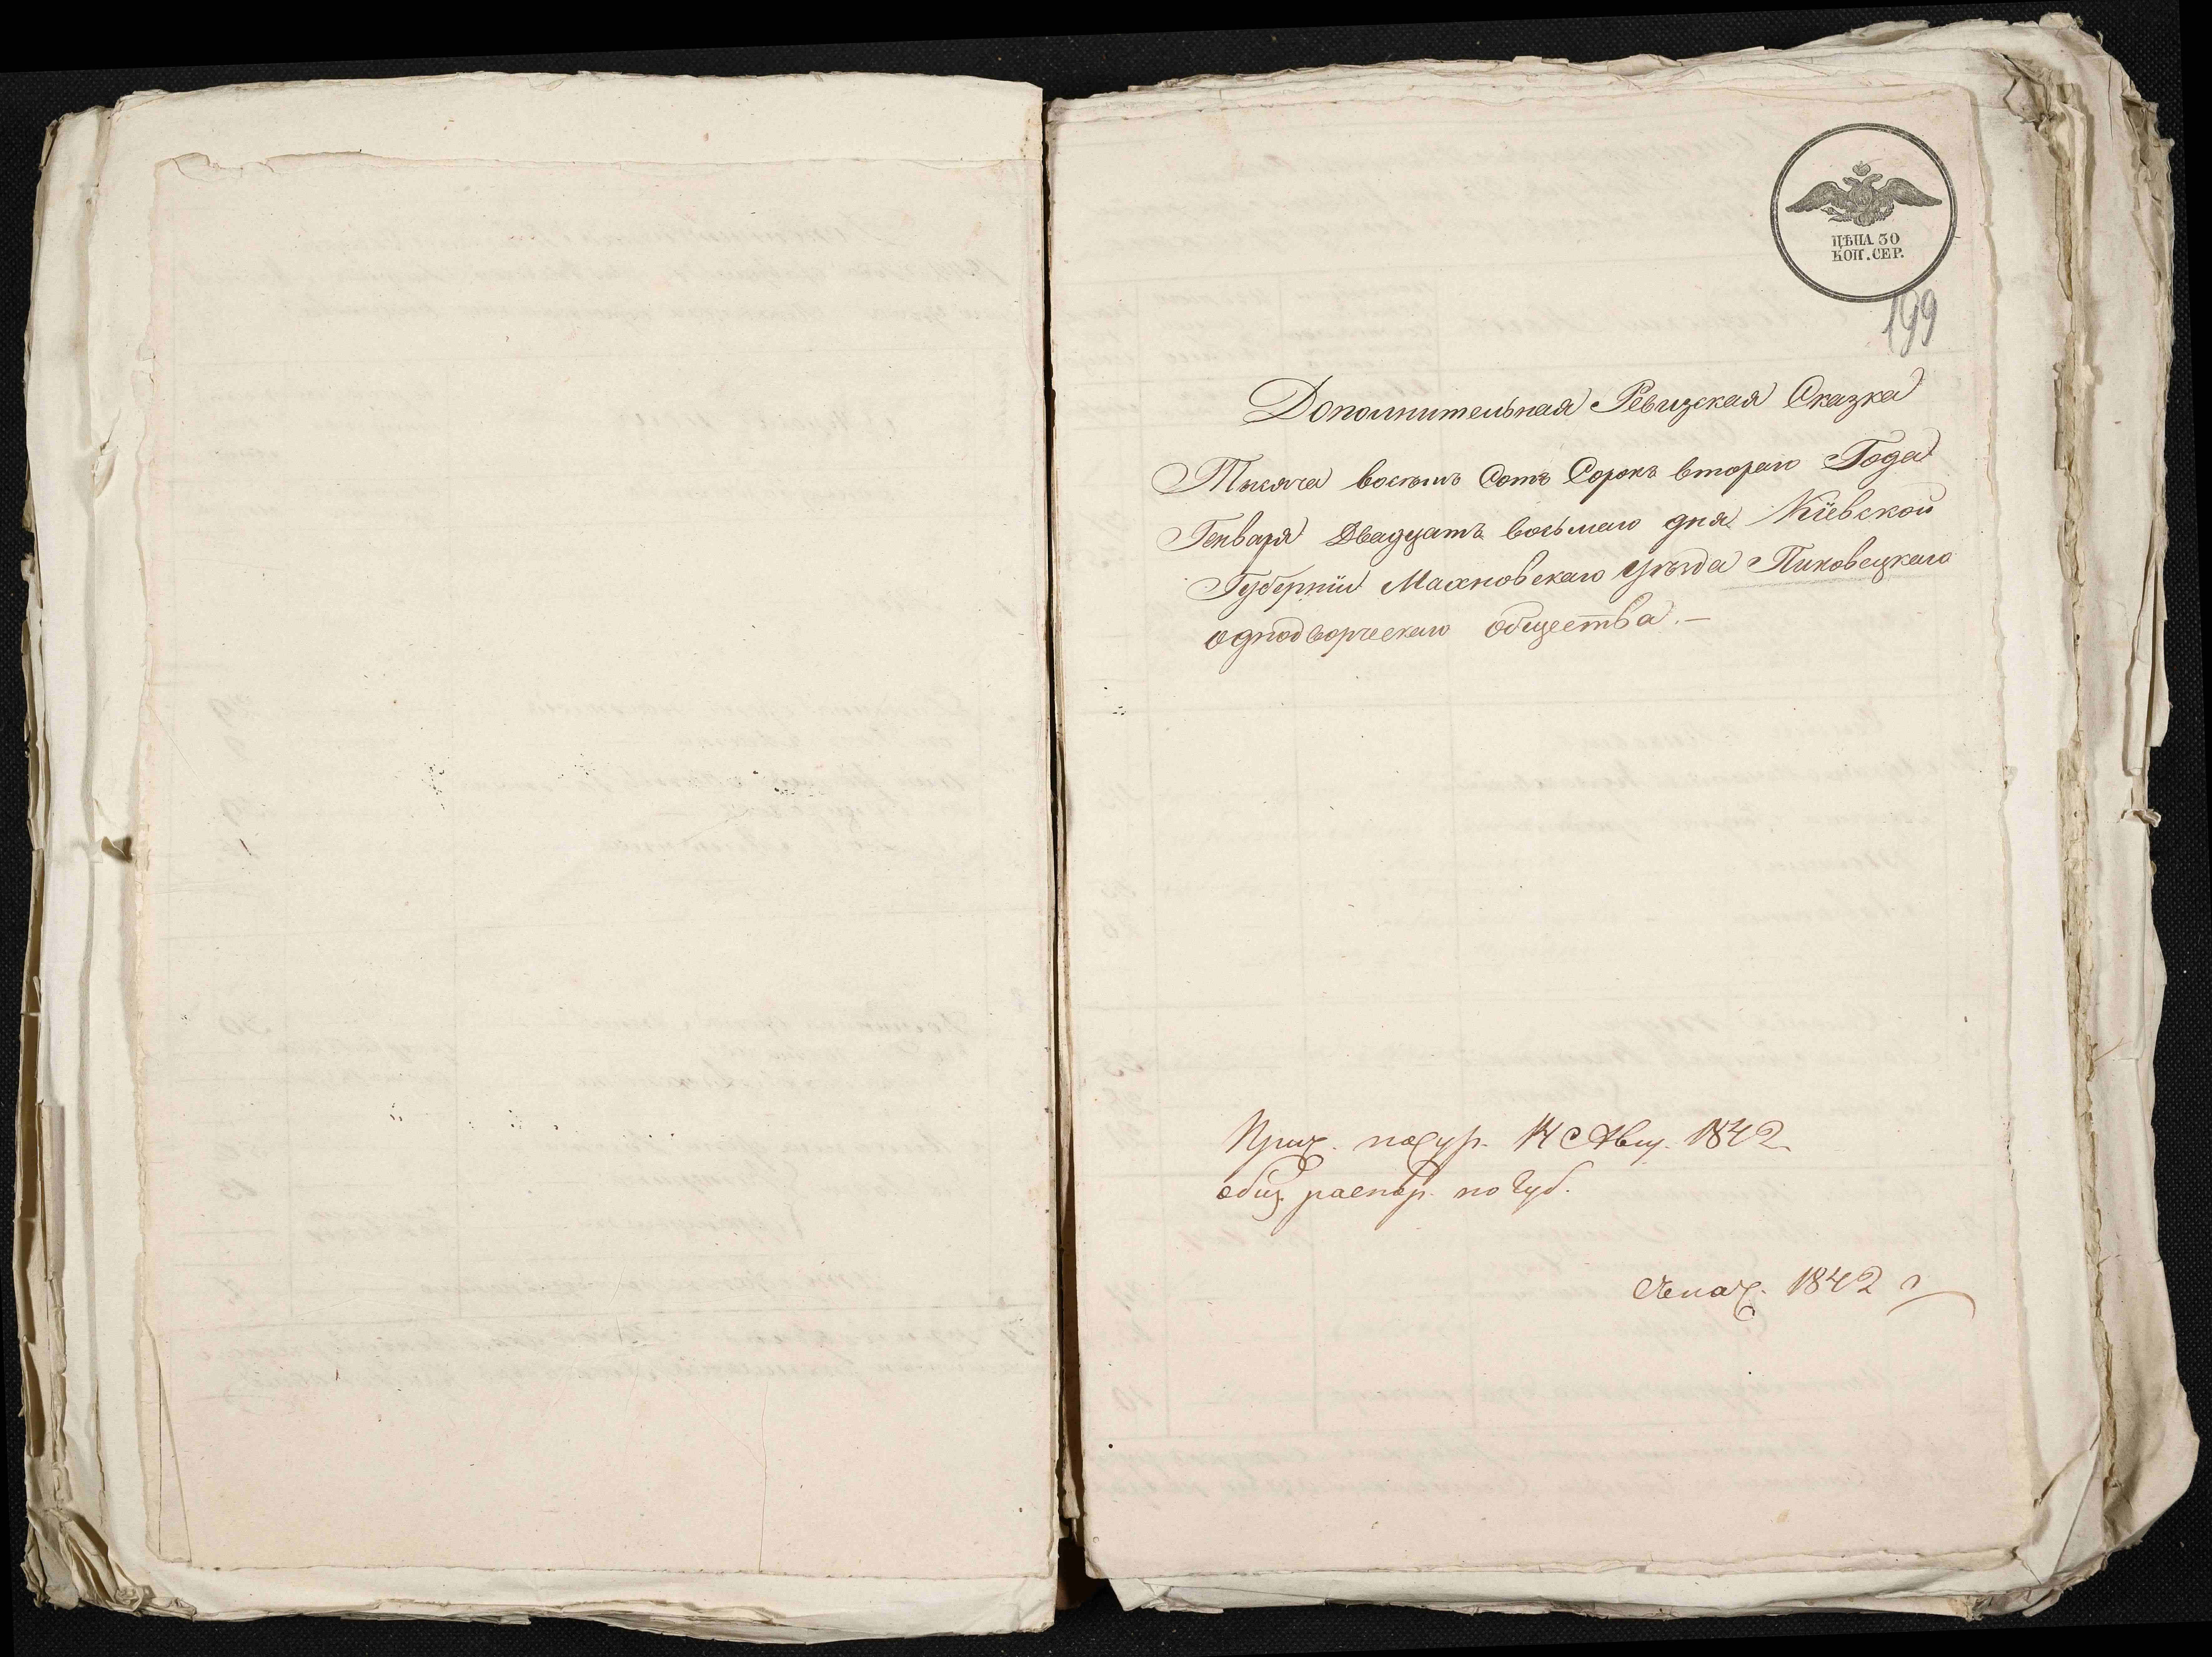 ЦѢНА 30
КОП. СЕР.
199
Дополнительная Ревизская Сказка
Тысяча восѣмъ Сотъ Сорокъ втораго Года
Генваря Двадцатъ восьмаго дня Кіевской
Губерніи Махновскаго Уѣзда Пиковецкаго
однодворческаго общества. —
14 Авг. 1842
общ. распор. по Губ.
1842 г